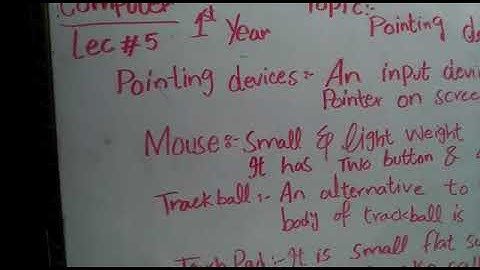 Computer
Topic:-
Lec #5 1st Year
Pointing
Pointing devices:- An input devi
Pointer on scree
Mouse:- Small & light weight
It has Two button &
Trackball:- An alternative to
body of trackball is
Touch Pad:- It is small flat su